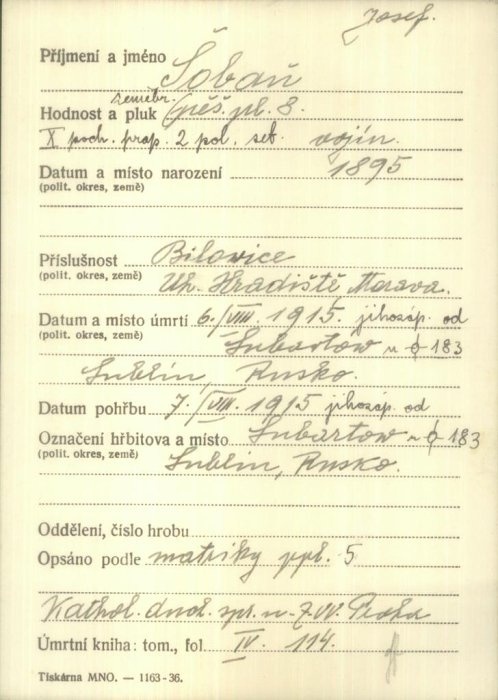 Josef.
Příjmení a jméno Šobaň
zeměbr.
Hodnost a pluk pěš. pl. 8.
X poch. prap. 2 pol. set. vojín.
Datum a místo narození 1895
(polit. okres, země)
Příslušnost Bilovice
(polit. okres, země) Uh. Hradiště Morava.
Datum a místo úmrtí 6./VIII. 1915. jihozáp. od
(polit. okres, země) Lubartów u ϕ 183
Lublin, Rusko.
Datum pohřbu 7./VIII. 1915 jihozáp. od
Označení hřbitova a místo Lubartow u ϕ 183
(polit. okres, země) Lublin, Rusko.
Oddělení, číslo hrobu
Opsáno podle matriky ppl. 5
Kathol. duch. spr. u Z.VV. Praha
Úmrtní kniha: tom., fol. IV. 114.
Tiskárna MNO. — 1163-36.